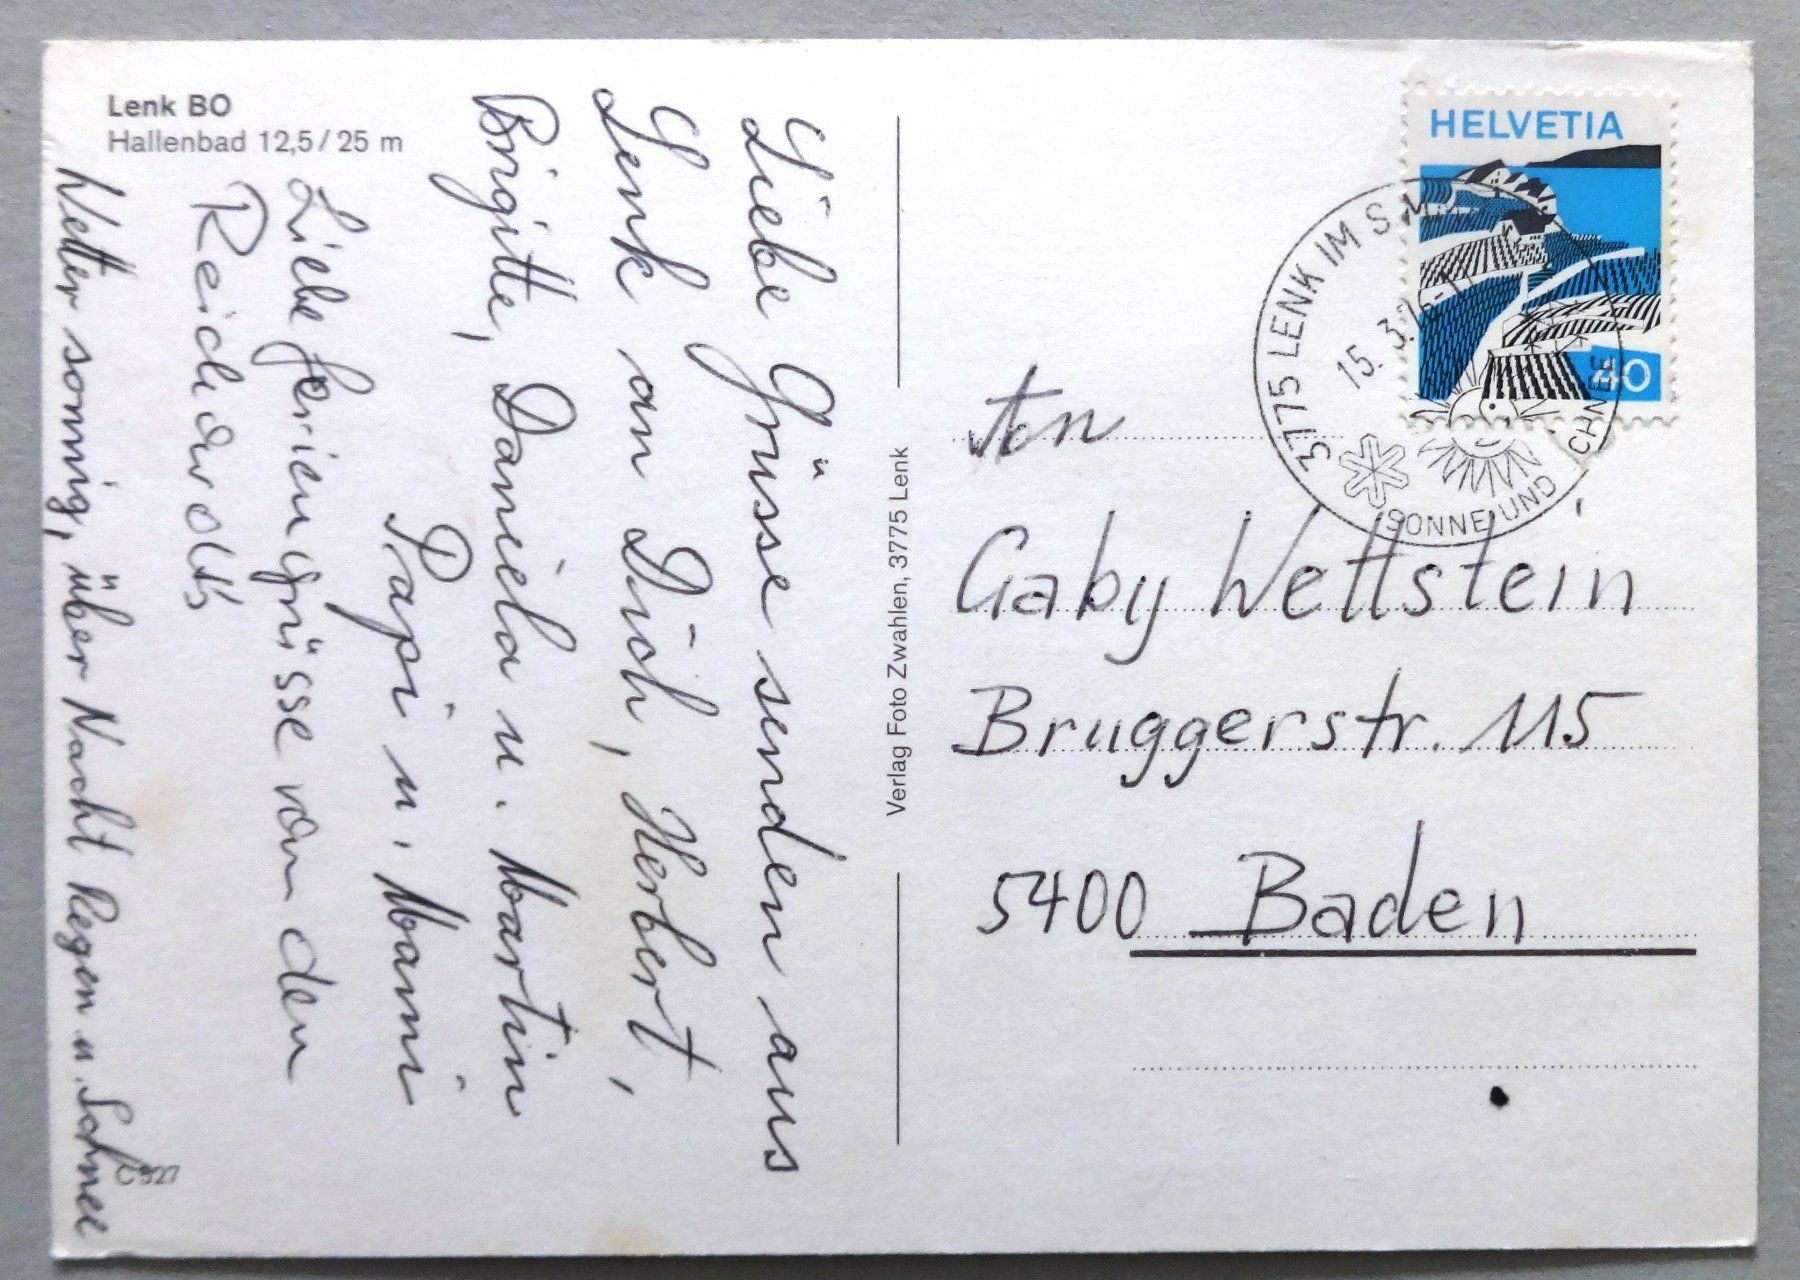 Lenk BO
Hallenbad 12,5/25 m
Liebe Grüsse senden aus
Lenk an Dich, Herbert,
Brigitte, Daniela u. Martin
Papi u. Mami
Liebe Feriengrüsse von den
Reichardt's
Wetter sonnig, über Nacht Regen u. Schnee
C 927
Verlag Foto Zwahlen, 3775 Lenk
HELVETIA
3775 LENK IM S
15. 3. 7
SONNE UND SCHNEE
Gaby Wettstein
Bruggerstr. 115
5400 Baden